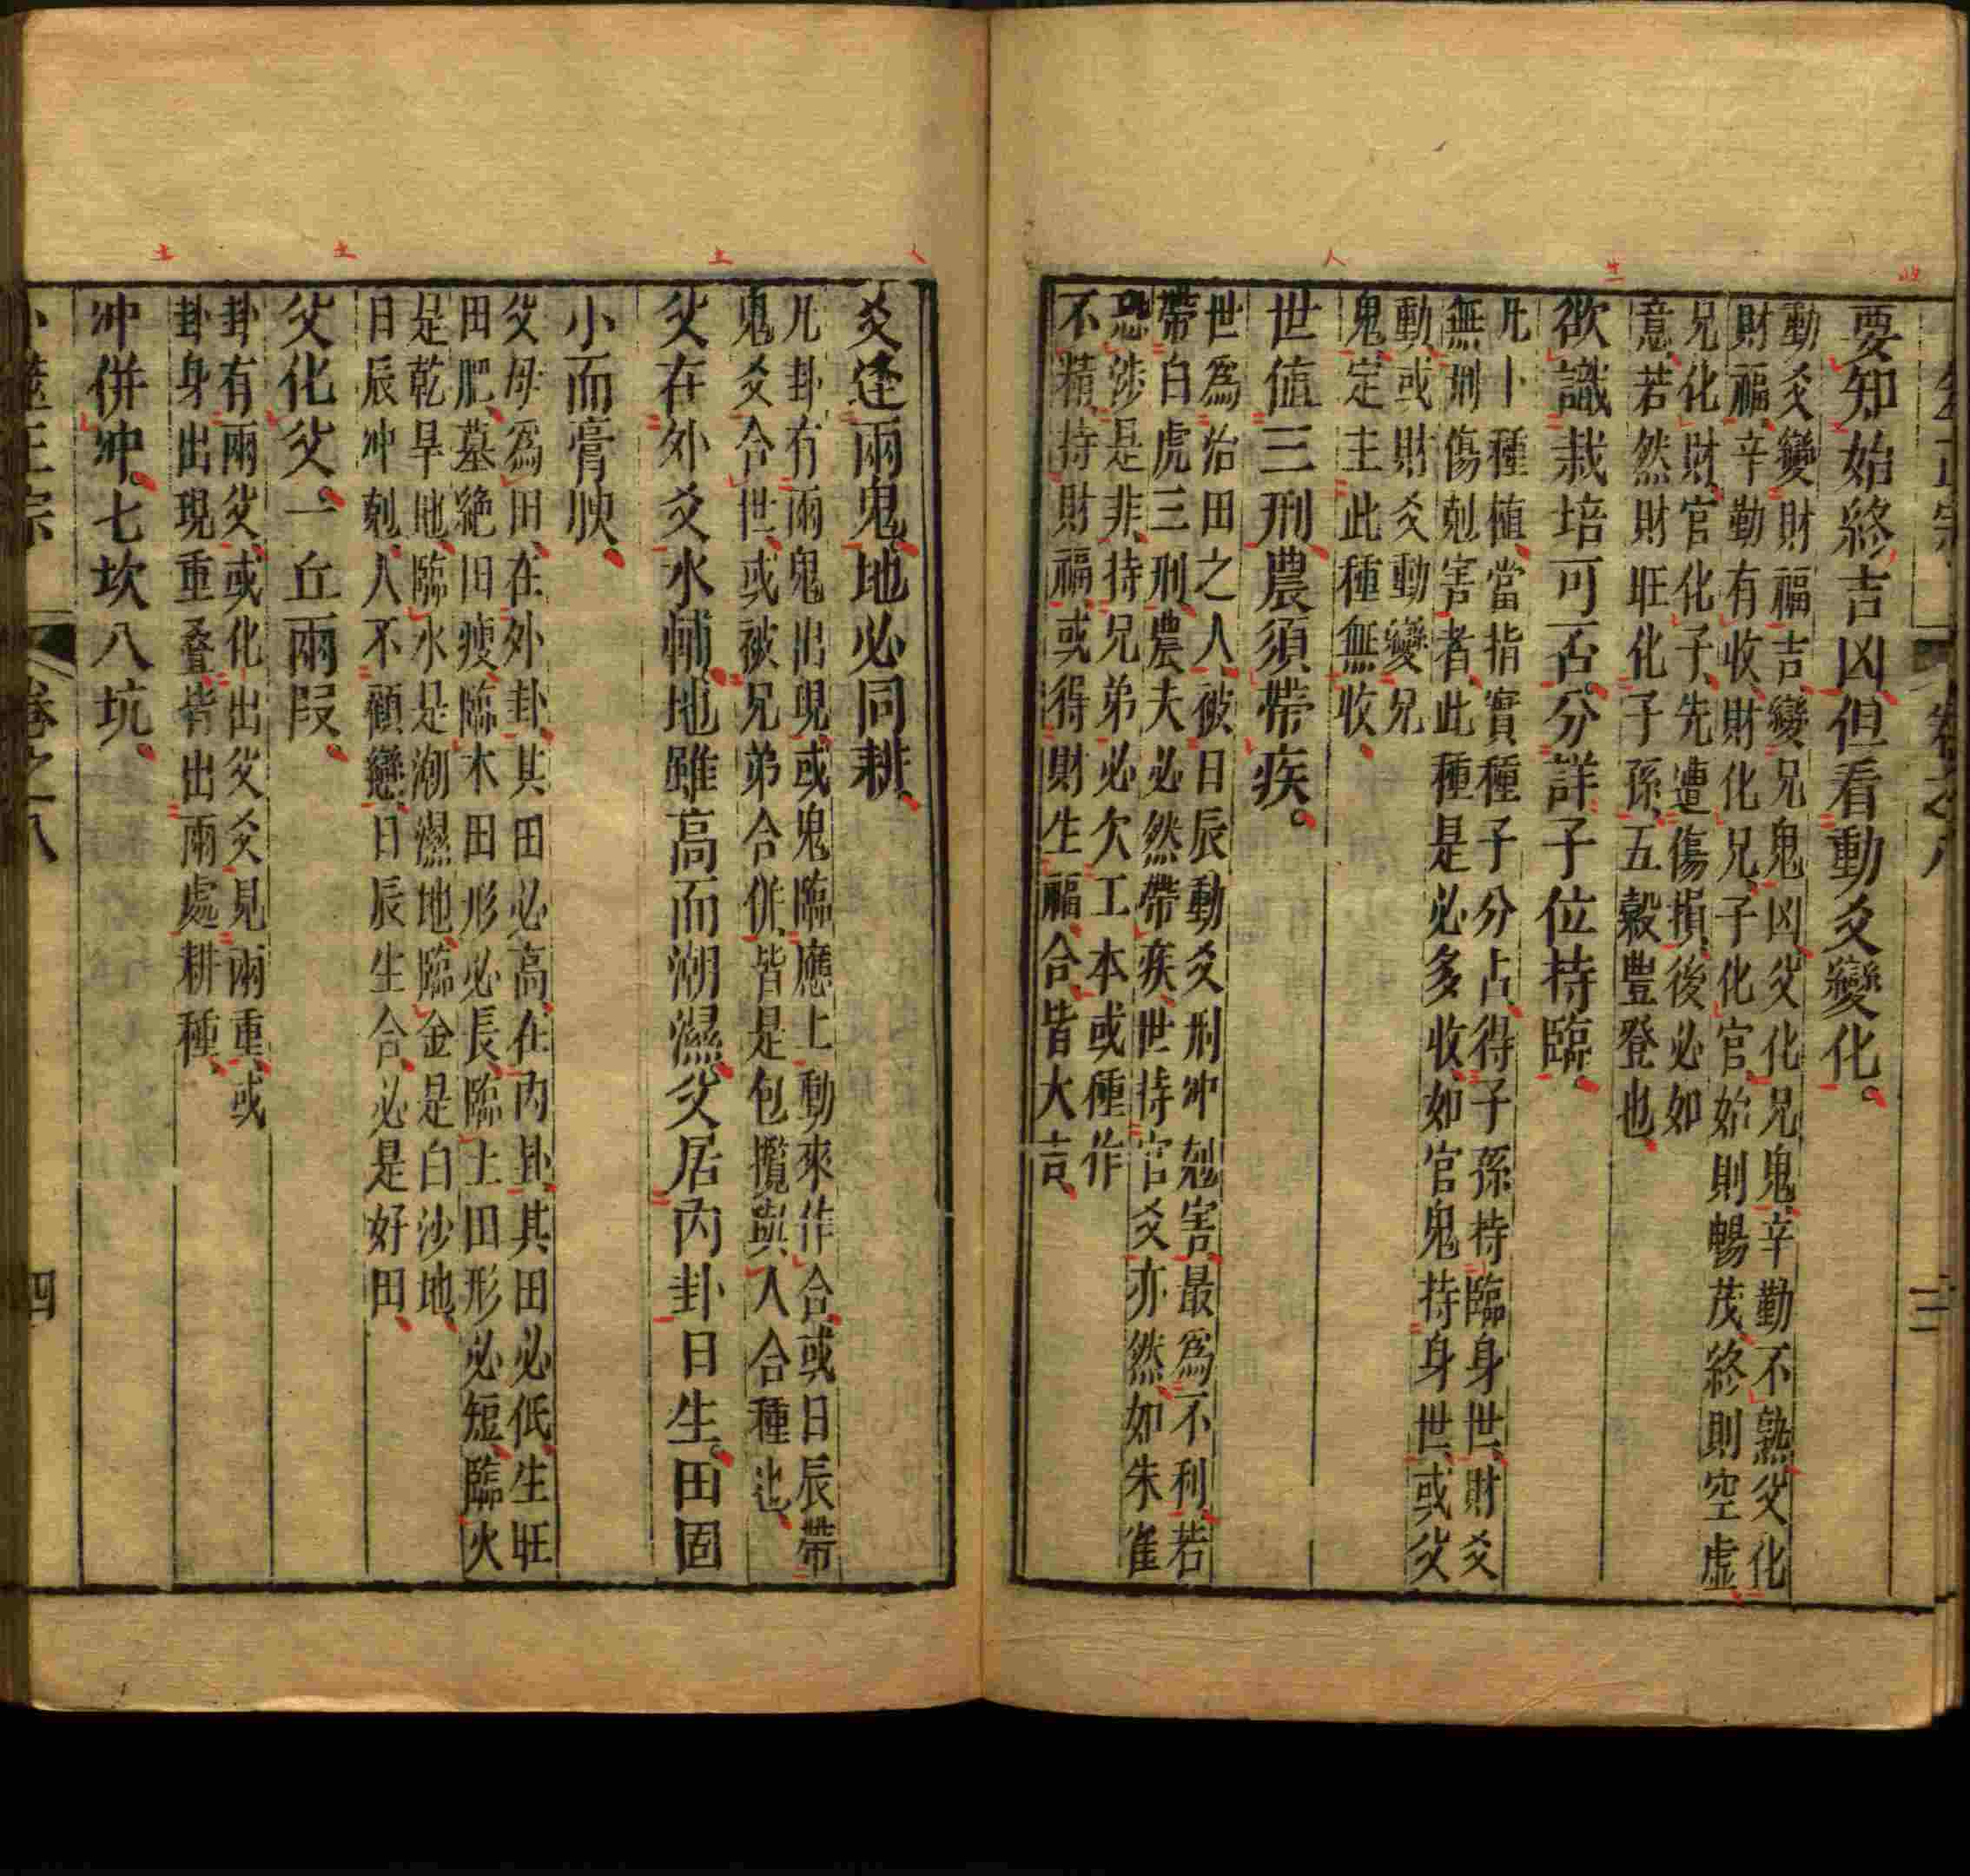 要知始終吉凶但看動爻變化。
動爻變財福吉、變兄鬼凶、父化兄鬼、辛勤不熟、父化
財福、辛勤有收、財化兄、子化官、始則暢茂、終則空虛、
兄化財、官化子、先遭傷損、後必如
意、若然財旺化子孫、五穀豐登也、
欲識栽培可否。分詳子位持臨。
凡卜種植、當指實種子分占、得子孫持臨身世、財爻
無刑傷剋害者、此種是必多收、如官鬼持身世、或父
動或財爻動變兄
鬼定主此種無收、
世值三刑、農須帶疾。
世爲治田之人、被日辰動爻刑冲剋害、最爲不利、若
帶白虎三刑、農夫必然帶疾、世持官爻亦然、如朱雀
恐涉是非、持兄弟必欠工本或種作
不精、持財福、或得財生福合、皆大吉、
爻逢兩鬼、地必同耕、
凡卦有兩鬼出現、或鬼臨應上動來作合、或日辰帶
鬼爻合世、或被兄弟合併、皆是包攬與人合種也、
父在外爻水輔、地雖高而潮濕。父居內卦日生。田固
小而膏腴、
父母爲田、在外卦、其田必高、在內卦、其田必低、生旺
田肥、墓絶田瘦、臨木田形必長、臨土田形必短、臨火
是乾旱地、臨水是潮濕地、臨金是白沙地、
日辰冲剋、人不顧戀、日辰生合、必是好田、
父化父。一丘兩段。
卦有兩父、或化出父爻見兩重、或
卦身出現重疊、皆出兩處耕種、
冲併冲。七坎八坑、
卜筮正宗
卷之八
四